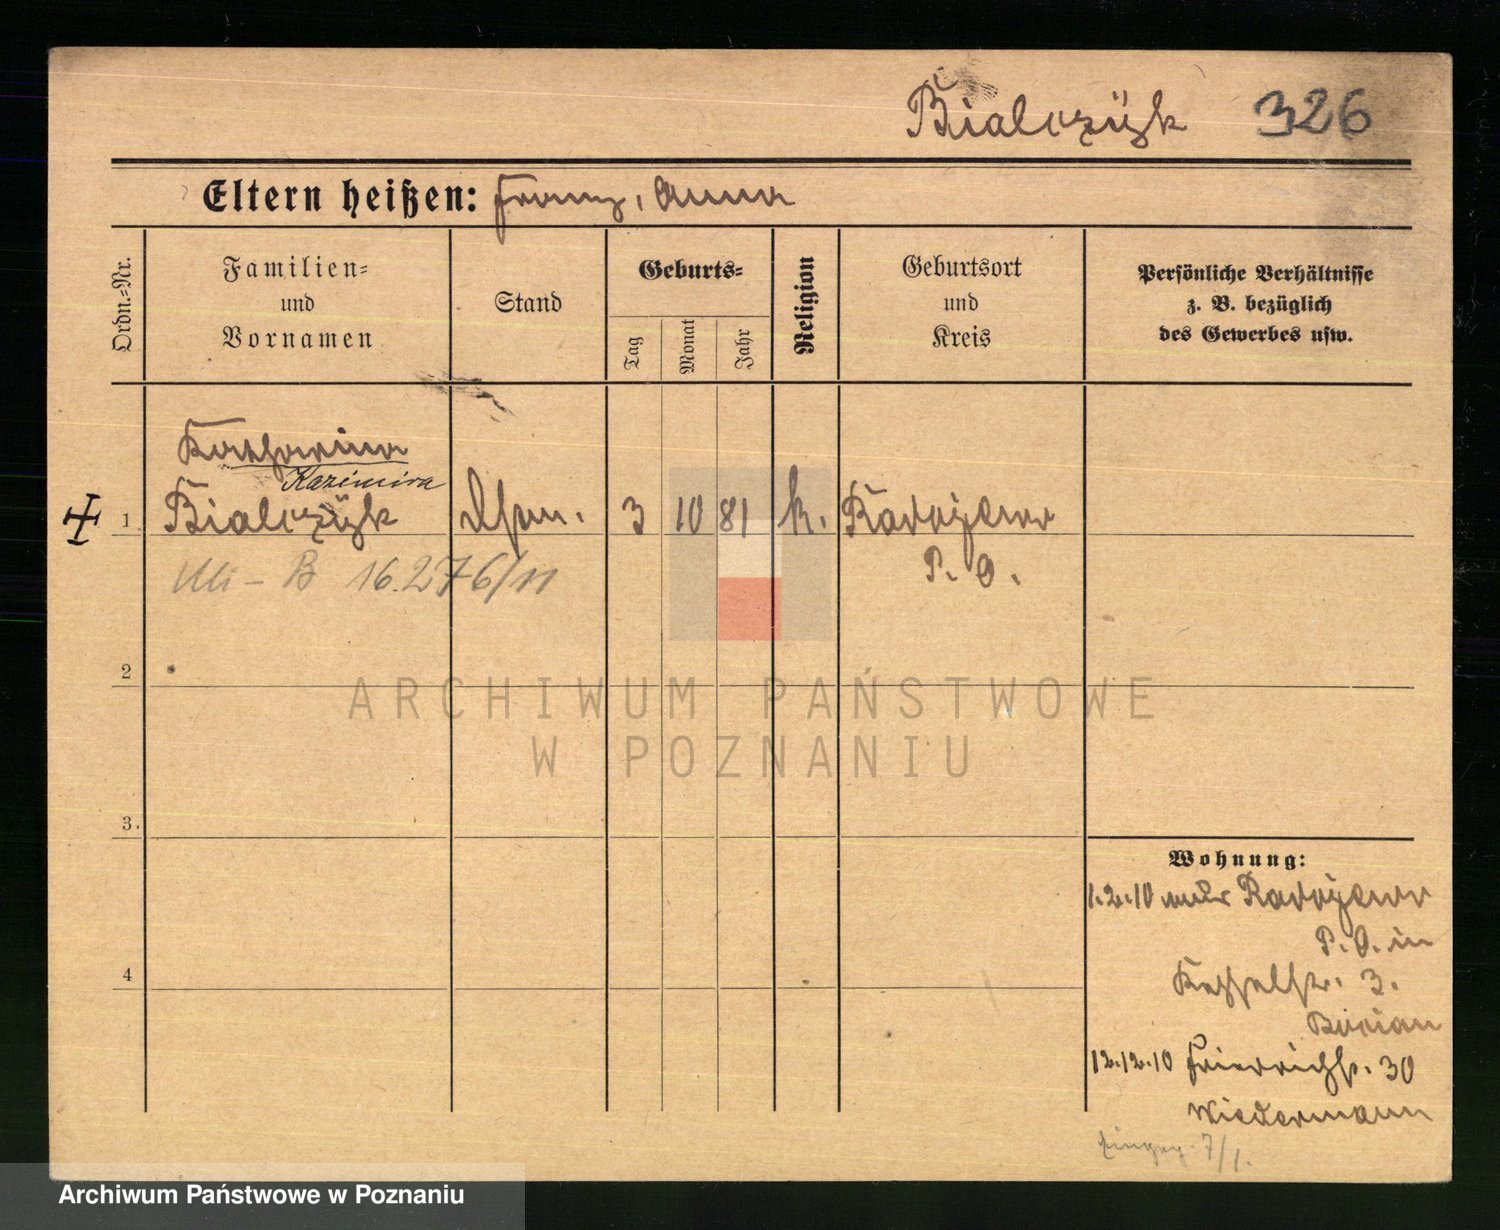 Bialczÿk 326
Eltern heißen: Franz, Anna
Ordn.=Nr.
Familien=
und
Vornamen
Stand
Geburts=
Tag
Monat
Jahr
Religion
Geburtsort
und
Kreis
Persönliche Verhältnisse
z. B. bezüglich
des Gewerbes usw.
Katharina
Kazimira
1 Bialczÿk 3 10 81 k. Radojewo
P. O.
B 16.276/11
2
3.
4
ARCHIWUM PAŃSTWOWE
W POZNANIU
Wohnung:
1.2.10 Radojewo
P. O. in
Kesselstr. 3.
12.12.10 Friedrichstr. 30
Wiedermann
7/1.
Archiwum Państwowe w Poznaniu